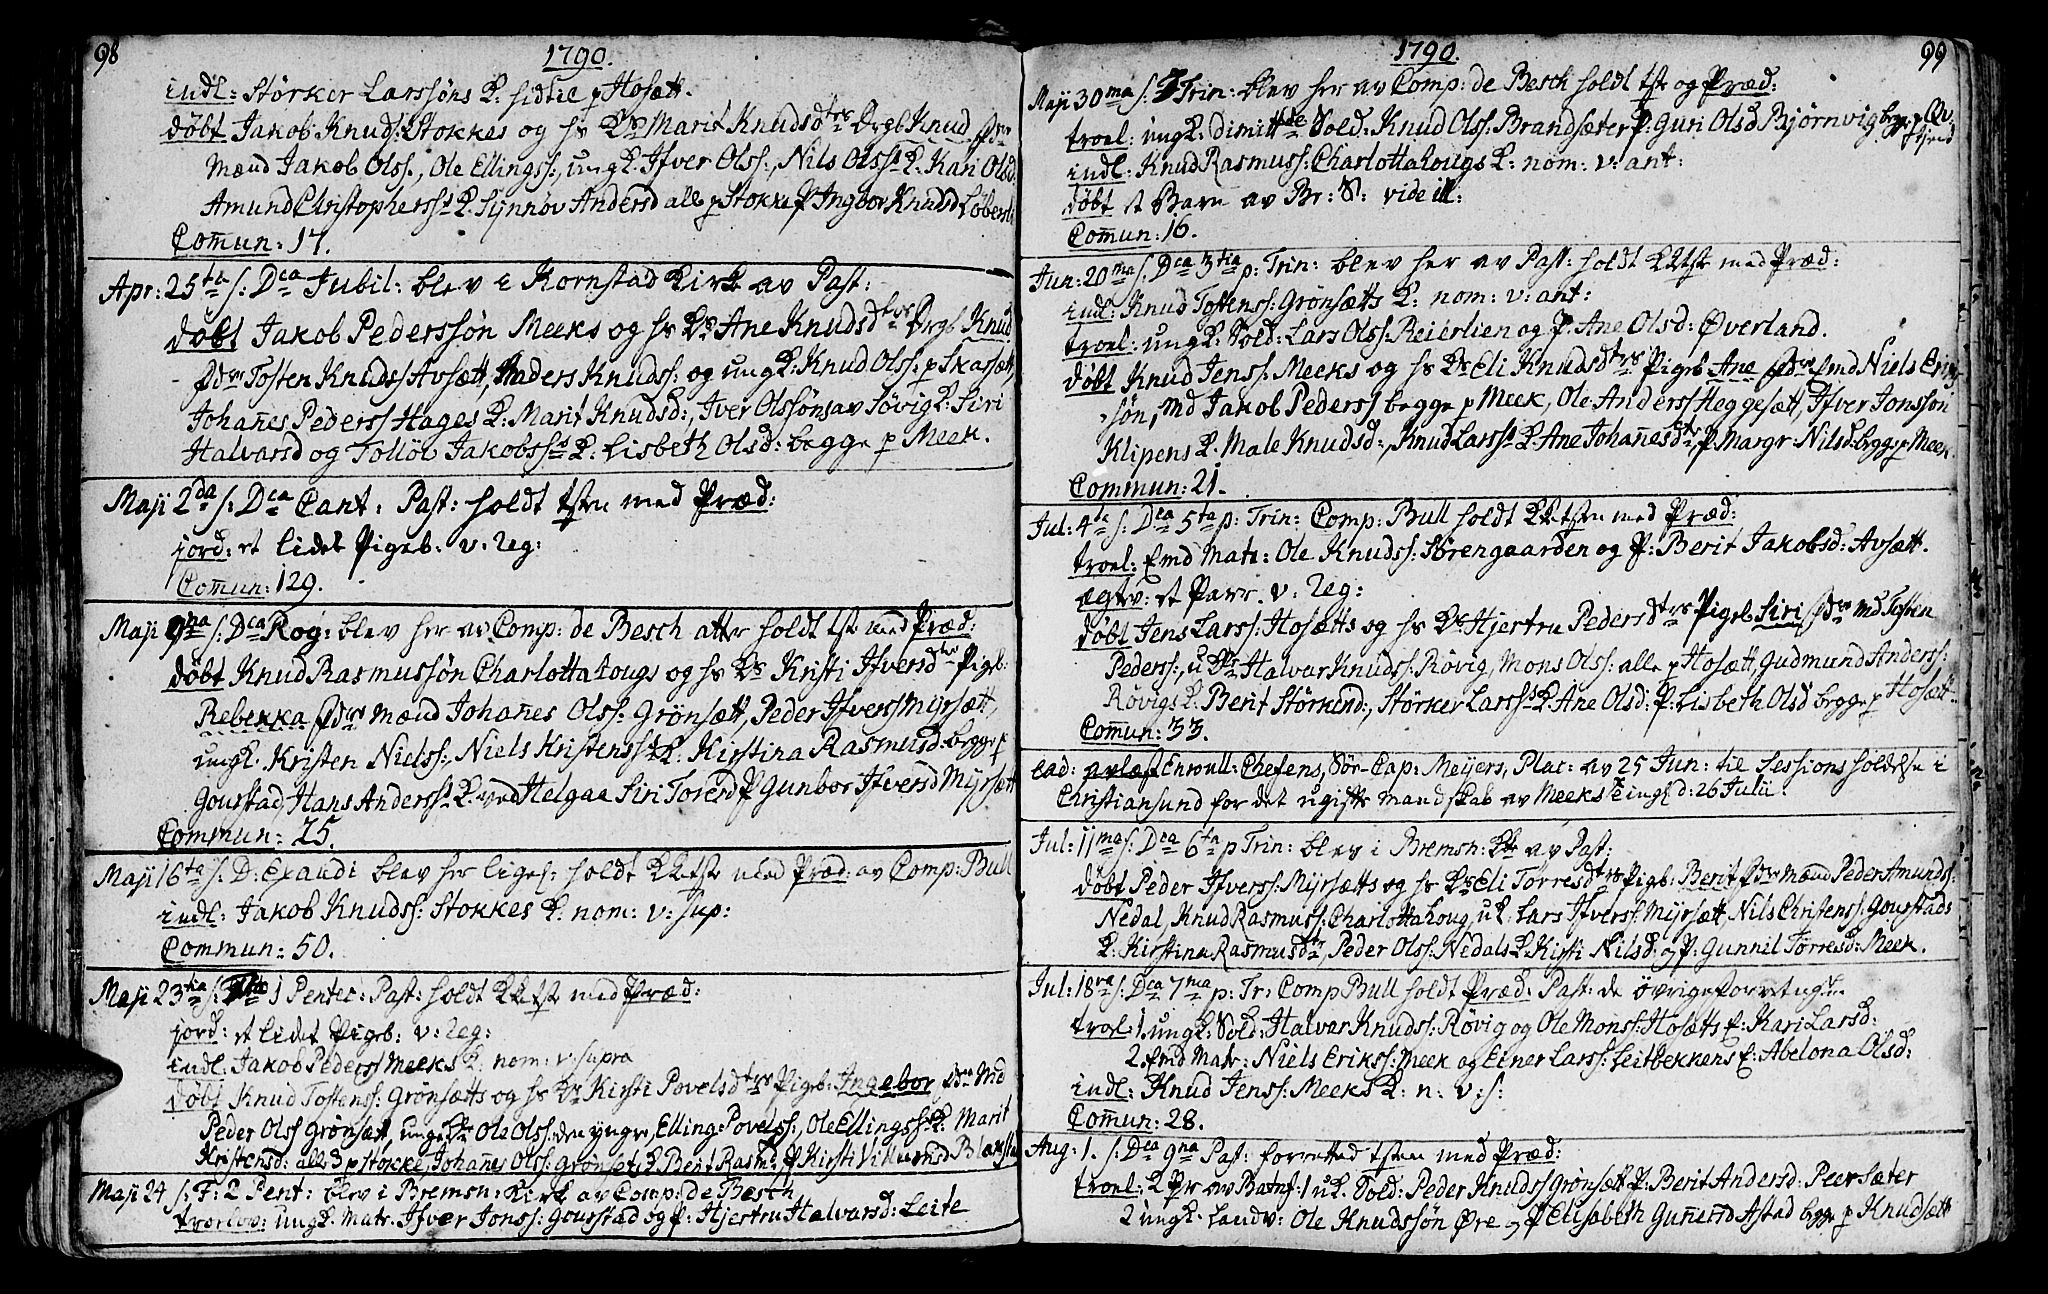 98
1790.
indl: Störker Larssöns K: sidtil p Hosætt.
döbt Jakob Knuds: Stokkes og hs Ks Marit Knudsdtrs Drgb Knud
Mænd Jakob Olss:, Ole Ellingss:, ungk Ifver Olss:, Nils Olss K: Kari Olsd:
Amund Christopherss K. Synnöv Andersd alle p Stokke P Ingbor Knudsd
Comun: 17.
Apr: 25ta s: Dca Jubil: blev i Kornstad Kirk av Past:
döbt Jakob Pederssön Meeks og hs Ks Ane Knudsdtrs Drgb Knud
Tosten Knuds Avsætt, Anders Knudss: og ungk: Knud Olss: p Skarsætt,
Johañes Pederss Hages K: Marit Knudsd:, Iver Olssöns av Sövig K: Siri
Halvarsd og Tollöv Jakobss K: Lisbeth Olsd: begge p Meek.
Maji 2da s: Dca Cant: Past: holdt tsten med Præd:
jord: et lidet Pigeb: v: seg:
Comun: 129.
Maji 9na s: Dca Rog: blev her av Comp: de Besch atter holdt tst med Præd:
döbt Knud Rasmussön Charlottalougs og hs Ks Kristi Ifversdtrs Pigb:
Rebekka Mænd Johañes Olss: Grönsætt, Peder Ifverss Myrsætt,
ungk. Kristen Nielss:, Niels Kristenss K. Kirstina Rasmusd: begge p
Gourstad, Hans Anderss K. ved Helgaa Siri Toresd P Gunbor Ifversd Myrsætt
Commun: 25.
Maji 16ta s: D: Exaudi blev her liges: holdt KKtst med Præd: av Comp: Bull
indl: Jakob Knudss: Stokkes K: nom: v: sup:
Commun: 50.
Maji 23tia s: 1 Pentec: Past: holdt KKtst med Præd:
jord: et lidet Pigb: v: seg:
indl: Jakob Pederss Meeks K: nom: v: supra
döbt Knud Tostenss: Grönsætts og hs Ks Kirsti Povelsdtrs Pigb: Ingebor Md
Peder Olss Grönsætt, ungk Ole Olss: den yngre, Elling Povelss: Ole Ellingss K: Marit
Kristensd: alle 3 p Stokke, Johañes Olss: Grönset K Berit Rasmd P Kirsti
Maji 24 s: F: 2 Pent: blev i Bremsn: Kirk av Comp: de Besch
troelov: ungk: Matr: Ifver Jonss: Gourstad og P: Hjertru Halvarsd: Leite
1790.
99
Maji 30ma s: F Trin: blev her av Comp: de Besch holdt tst og Præd:
troel: ungk: dimitt Sold: Knud Olss: Brandsæter P: Guri Olsd Bjørnvig
indl: Knud Rasmuss: Charlottalougs K: nom: v: ant:
döbt et Barn av Br: S: vide ill:
Comun: 16.
Jun: 20ma s: Dca 3tia p: Trin: blev her av Past: holdt KKtst med Præd:
indl: Knud Tostenss: Grönsætts K: nom: v: ant:
troel: ungk: Sold: Lars Olss: Reierlien og P. Ane Olsd: Øverland.
döbt Knud Jenss: Meeks og hs Ks Eli Knudsdtrs Pigeb Ane Md Niels Erics
sön, Md Jakob Pederss begge p Meek, Ole Anderss Heggesætt, Ifver Jonssön
Klipens K. Male Knudsd:, Knud Larss K. Ane Johañesdtr P. Margr: Nilsd: begge p Meek
Commun: 21.
Jul: 4ta s: Dca 5ta p: Trin: Comp: Bull holdt KKtsten med Præd:
troel: Emd Matr: Ole Knudss: Sörengaarden og P: Berit Jakobsd: Avsætt.
ægtev: et Parr v: seg:
döbt Jens Larss: Hosætts og hs Ks Hjertru Pedersdtrs Pigeb Siri Md Tosten
Pederss:, u Ks Halvar Knudss: Rövig, Mons Olss: alle p Hosætt, Gudmund Anderss:
Rövigs K. Berit Störkend:, Störker Larss K Ane Olsd: P: Lisbeth Olsd begge p Hosætt.
Comun: 33.
ead: avlæst Enroull: Chefens, Sör-Cap: Meijers, Plac: av 25 Jun: til Sessions holdelse i
Christiansund for det ugifte mandskab av Meeks d: 26 Julii.
Jul: 11ma s: Dca 6ta p Trin: blev i Bremsn: Kk av Past:
döbt Peder Ifverss: Myrsætts og hs Ks Eli Torresdtrs Pigb: Berit Mænd Peder Amunds:
Nedal, Knud Rasmuss: Charlottaloug, uk. Lars Ifverss: Myrsætt, Nils Christenss: Gourstads
K: Kirstina Rasmusd, Peder Olss: Nedals K Kirsti Nilsd: og P: Gunnil Torresd: Meek.
Jul: 18va s: Dca 7ma p: Tr: Comp Bull holdt Præd: Past: de övrige forretngr
troel: 1. ungk: Sold: Halvar Knudss: Rövig og Ole Monss: Hosætts E: Kari Larsd:
2. Emd Matr: Niels Erikss: Meek og Einer Larss: Leitbekkens E: Abelona Olsd:
indl: Knud Jenss: Meeks K: n: v: s:
Comun: 28.
Aug: 1. s: Dca 9na Past: forretted tsten med Præd:
troel: 2 Pr av Barnf: 1 uk: Sold: Peder Knudss Grönsætt P: Berit Andersd: Peersæter
2 ungk: Landv: Ole Knudssön Øre og P Elisabeth Guñersd Astad begge p Knudsætt